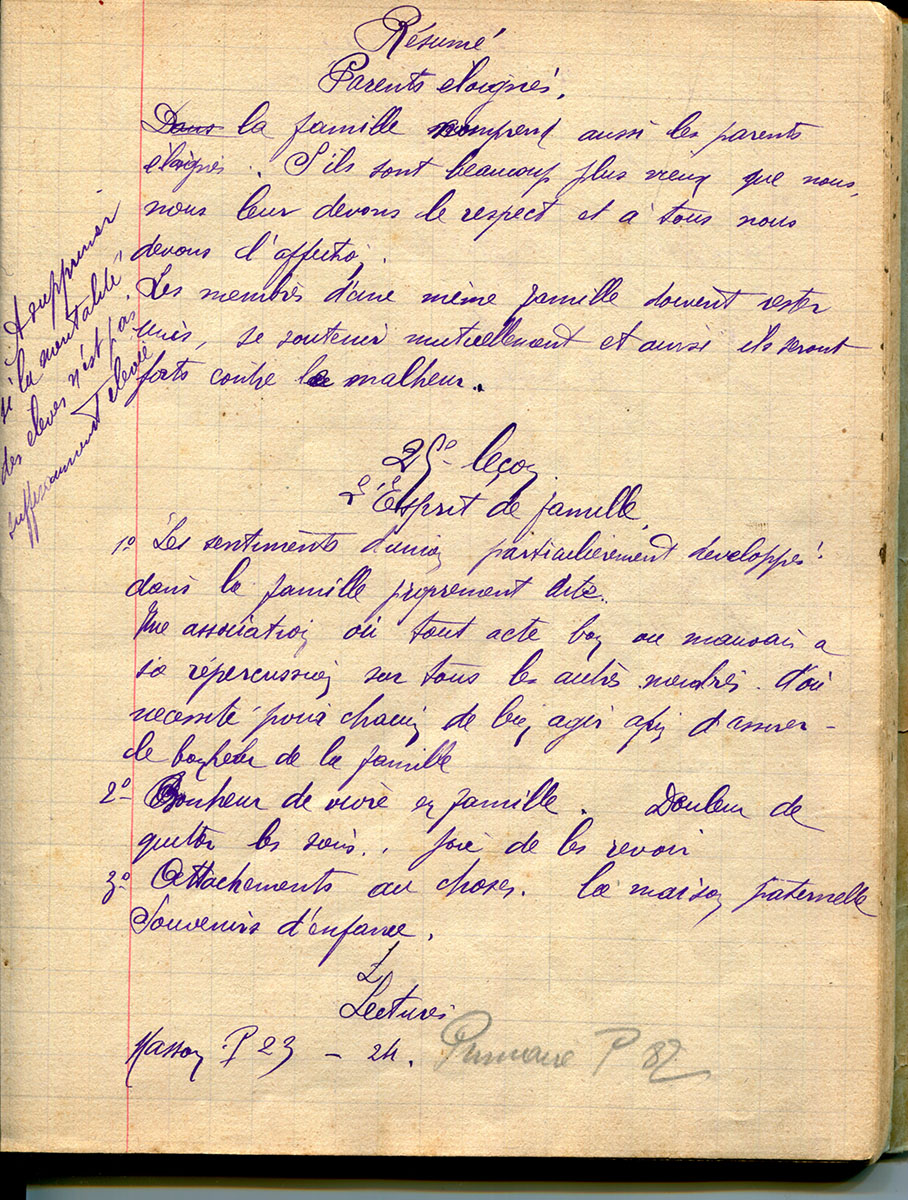 Résumé
Parents éloignés.
Dans la famille comprend aussi les parents
éloignés. S'ils sont beaucoup plus vieux que nous,
nous leur devons le respect et à tous nous
devons l'affection.
Les membres d'une même famille doivent rester
unis, se soutenir mutuellement et aussi ils seront
forts contre le malheur.
A supprimer
si la mentalité
des élèves n'est pas
suffisamment élevée
25e leçon
L'Esprit de famille
1o Les sentiments d'union particulièrement développés
dans la famille proprement dite.
Une association où tout acte bon ou mauvais a
sa répercussion sur tous les autres membres. d'où
necessité pour chacun de bien agir afin d'assurer
le bonheur de la famille
2o Bonheur de vivre en famille. Douleur de
quitter les siens.. joie de les revoir
3o Attachements au choses. la maison paternelle
Souvenirs d'enfance.
Lectures
Masson P 23 - 24. Primaire P 82